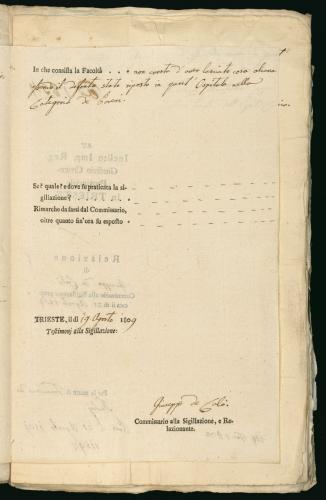 In che consista la Facoltà . . . non consta d'aver lasciato cosa alcuna
il defunto stato riposto in quest' Ospitale nella
Categoria de Poveri.
Se e quale? e dove fu praticata la si-
gillazione?
Rimarche da farsi dal Commissario,
oltre quanto fin'ora fu esposto
TRIESTE, il dì 19 Agosto 1809
Testimonj alla Sigillazione:
Giuseppe de
Commissario alla Sigillazione, e Re-
lazionante.